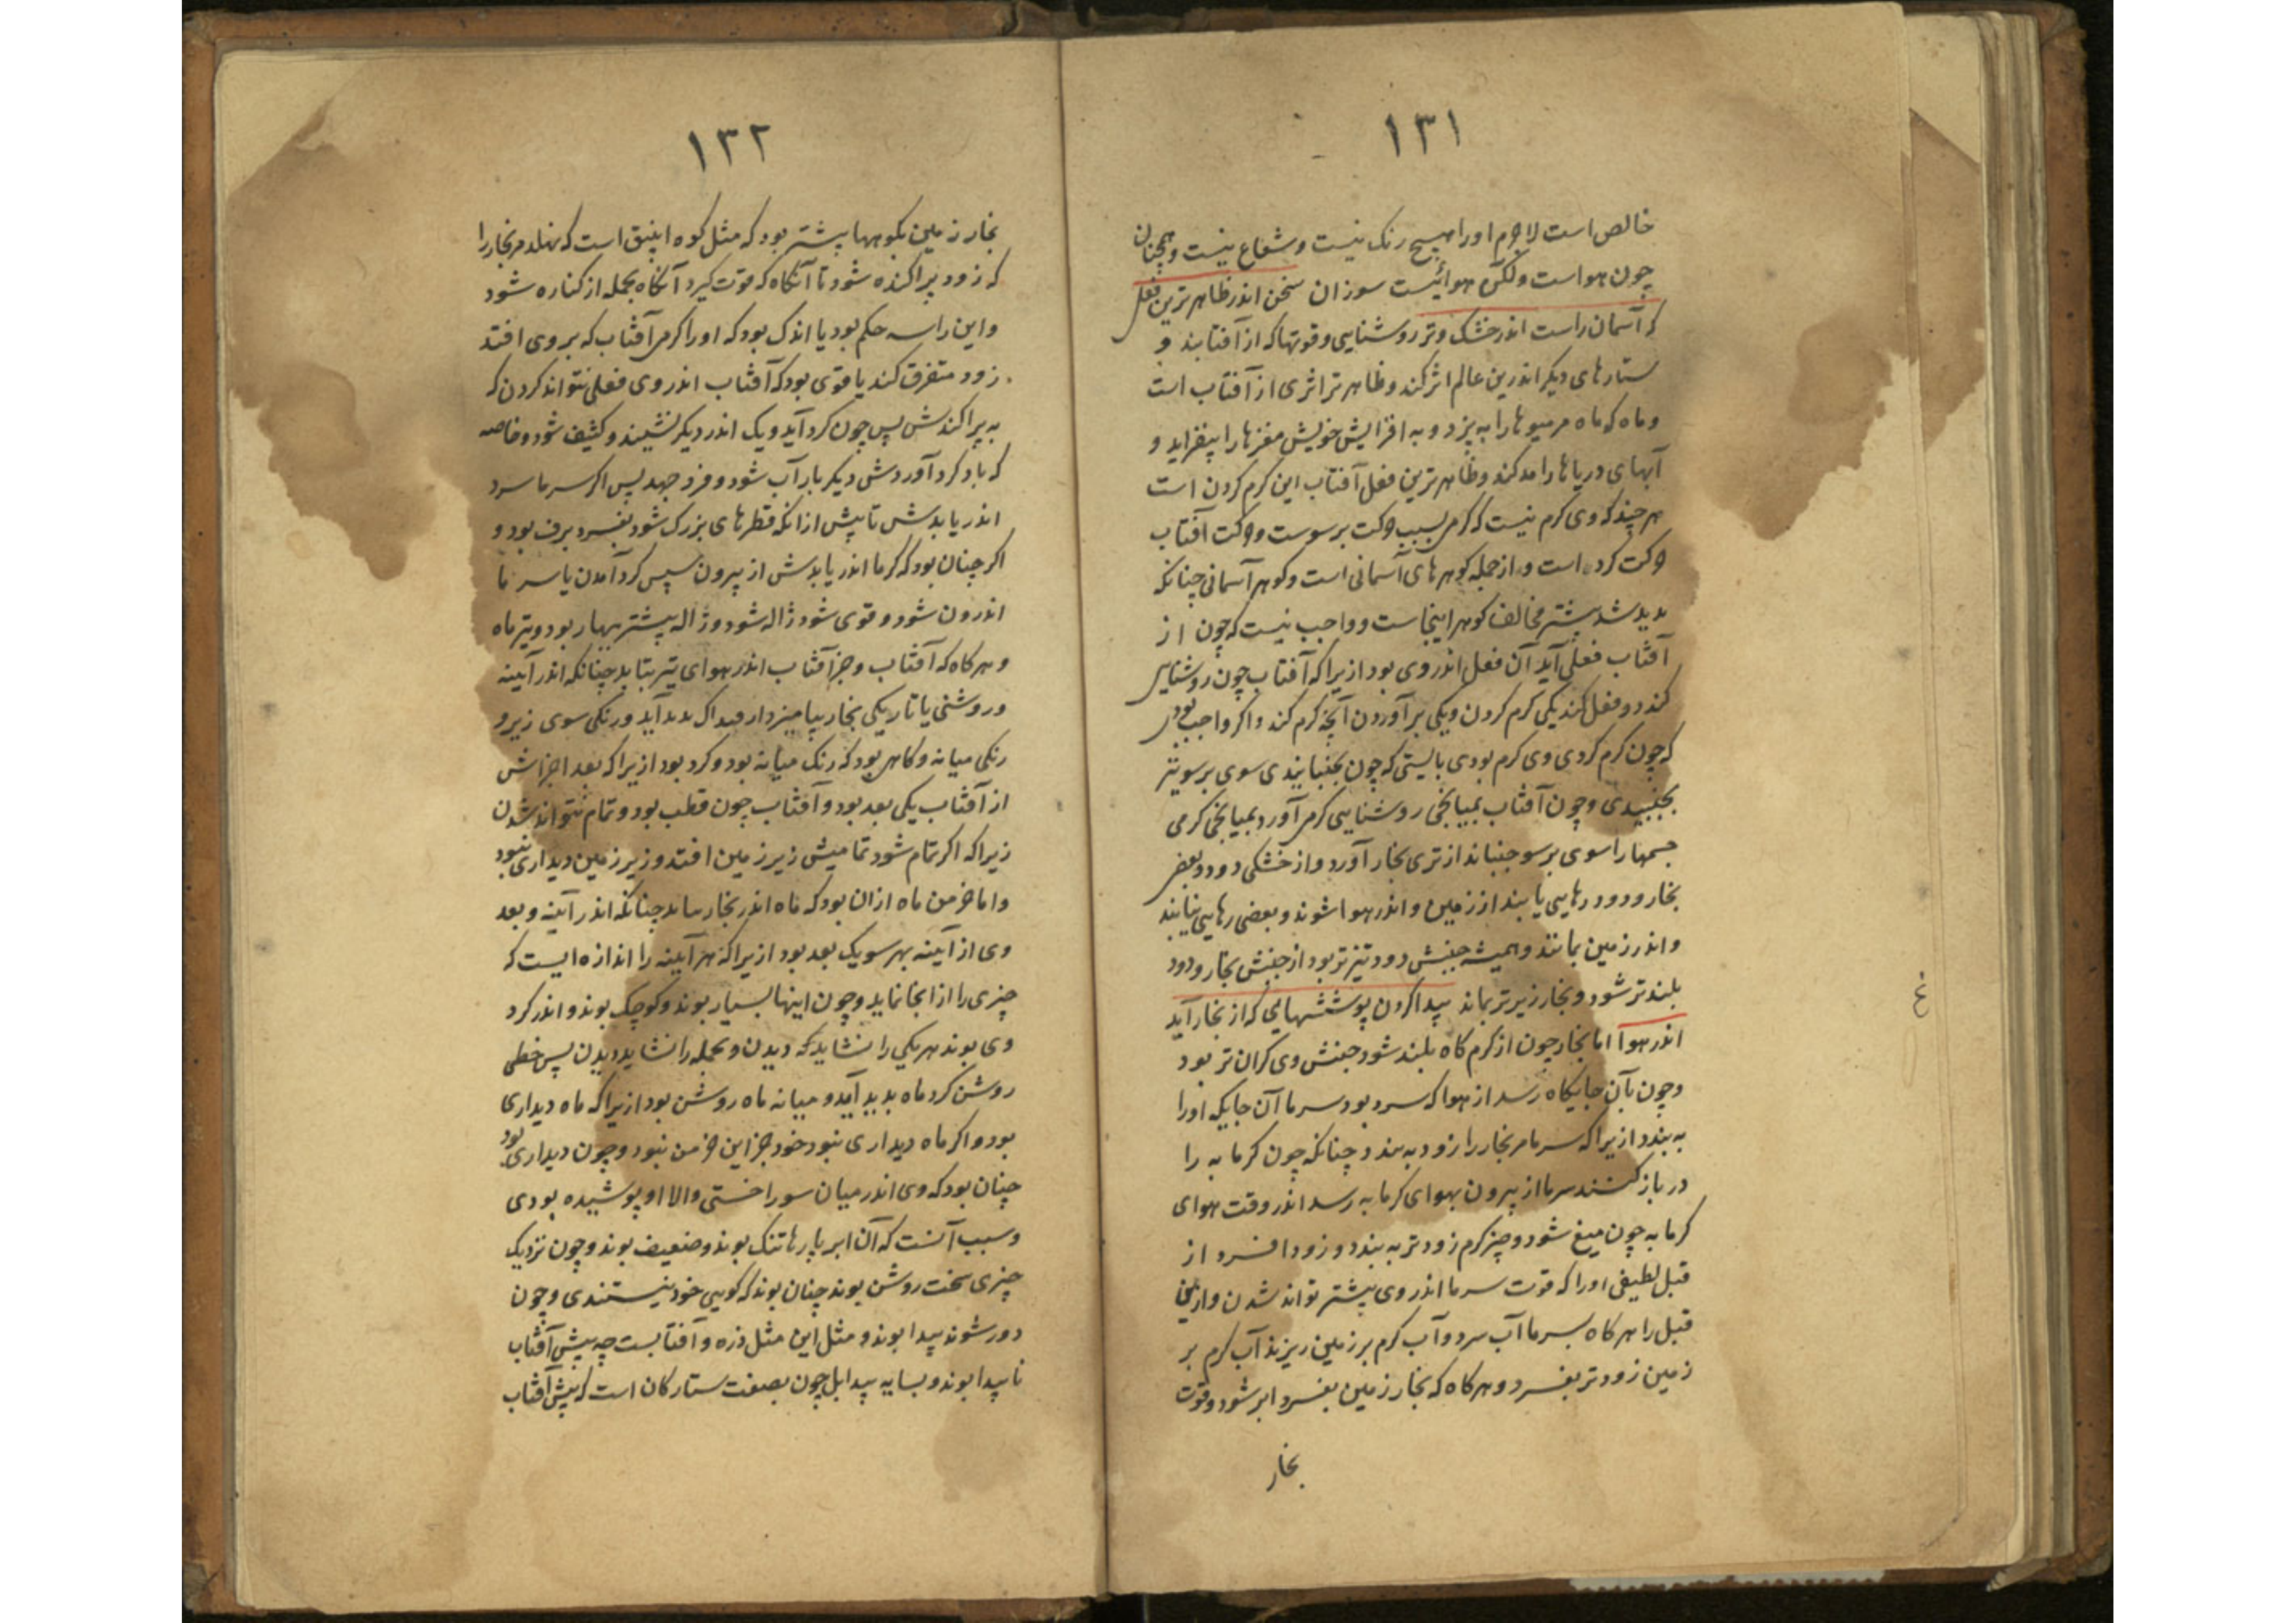 ۱۳۱
خالص است لاجرم او را هیچ رنک نیست و شعاع نیست و همچنان
چون هواست ولکن هوائیست سوزان سخن اندر ظاهرترین فعل
که آسمان راست اندر خشک و تر روشنایی و قوتها که از آفتابند و
ستارهای دیکر اندرین عالم اثر کند و ظاهرتر اثری از آفتاب است
و ماه که ماه مر میوها را به پزد و به افزایش خویش مغزها را بیفزاید و
آبهای دریاها را مد کند و ظاهرترین فعل آفتاب این کرم کردن است
هرچند که وی کرم نیست که کرمی بسبب حرکت برسوست و حرکت آفتاب
حرکت کرد است و از جمله کوهرهای آسمانی است و کوهر آسمانی چنانکه
بدید شد بیشتر مخالف کوهر اینجاست و واجب نیست که چون از
آفتاب فعلی آید آن فعل اندر وی بود ازیرا که آفتاب چون روشنایی
کند دو فعل کند یکی کرم کردن و یکی برآوردن آنچه کرم کند و اکر واجب بودی
که چون کرم کردی وی کرم بودی بایستی که چون بجنبانیدی سوی برسو نیز
بجنبیدی و چون آفتاب بمیانجی روشنایی کرمی آورد بمیانجی کرمی
جسمها را سوی برسو جنباند از تری بخار آورد و از خشکی دود و بعضی
بخار و دود رهایی یابند از زمین و اندر هوا شوند و بعضی رهایی نیابند
و اندر زمین بمانند و همیشه جنبش دود تیزتر بود از جنبش بخار و دود
بلندتر شود و بخار زیرتر بماند پیدا کردن پوششهایی که از بخار آید
اندر هوا اما بخار چون از کرم کاه بلند شود جنبش وی کران تر بود
و چون بآن جایکاه رسد از هوا که سرد بود سرما آن جایکه او را
به بندد ازیرا که سرما مر بخار را زود به بندد چنانکه چون کرمابه را
در باز کنند سرما از بیرون بهوای کرمابه رسد اندر وقت هوای
کرمابه چون میغ شود و چیز کرم زودتر به بندد و زود افسرد از
قبل لطیفی او را که قوت سرما اندر وی بیشتر تواند شدن و از اینجا
قبل را هرکاه بسرما آب سرد و آب کرم بر زمین ریزند آب کرم بر
زمین زودتر بفسرد و هرکاه که بخار زمین بفسرد ابر شود و قوت
بخار
۱۳۲
بخار زمین بکوهها بیشتر بود که مثل کوه انبیق است که نهلد مر بخار را
که زود پراکنده شود تا آنکاه که قوت کیرد آنکاه بجمله از کناره شود
و این را سه حکم بود یا اندک بود که او را کرمی آفتاب که بر وی افتد
زود متفرق کند یا قوی بود که آفتاب اندر وی فعلی نتواند کردن که
به پراکندش پس چون کرد آید و یک اندر دیکر نشیند و کثیف شود و خاصه
که باد کرد آوردش دیکر بار آب شود و فرو جهد پس اکر سرما سرد
اندر یابدش تا پیش از انکه قطرهای بزرک شود بفسرد برف بود و
اکر چنان بود که کرما اندر یابدش از بیرون سپس کرد آمدن یا سرما
اندرون شود و قوی شود ژاله شود و ژاله بیشتر ببهار بود و تیر ماه
و هرکاه که آفتاب و جز آفتاب اندر هوای تر بتابد چنانکه اندر آیینه
و روشنی یا تاریکی بخار بیامیزد از میداک بدید آید و رنکی سوی زیر و
رنکی میانه و کاهی بود که رنک میانه بود و کرد بود ازیرا که بعد اجزاش
از آفتاب یکی بعد بود و آفتاب چون قطب بود و تمام نتواند شدن
زیرا که اکر تمام شود تمامیش زیر زمین افتد و زیر زمین دیداری نبود
و اما خرمن ماه ازان بود که ماه اندر بخار بماند چنانکه اندر آینه و بعد
وی از آینه بهر سو یک بعد بود ازیرا که هر آینه را اندازه ایست که
چیزی را از انجا نماید و چون اینها بسیار بوند و کوچک بوند و اندر کرد
وی بوند هر یکی را نشاید که دیدن و بجمله را نشاید دیدن پس خطی
روشن کرد ماه بدید آید و میانه ماه روشن بود ازیرا که ماه دیداری
بود و اکر ماه دیداری نبود خود جز این خرمن نبود و چون دیداری بود
چنان بود که وی اندر میان سوراخستی والا او پوشیده بودی
و سبب آنست که آن ابر پارها تنک بوند و ضعیف بوند و چون نزدیک
چیزی سخت روشن بوند چنان بوند که کویی خود نیستندی و چون
دور شوند پیدا بوند و مثل این مثل ذره و آفتابست چه پیش آفتاب
ناپیدا بوند و بسایه پیدا بل چون بصفت ستارکان است که پیش آفتاب